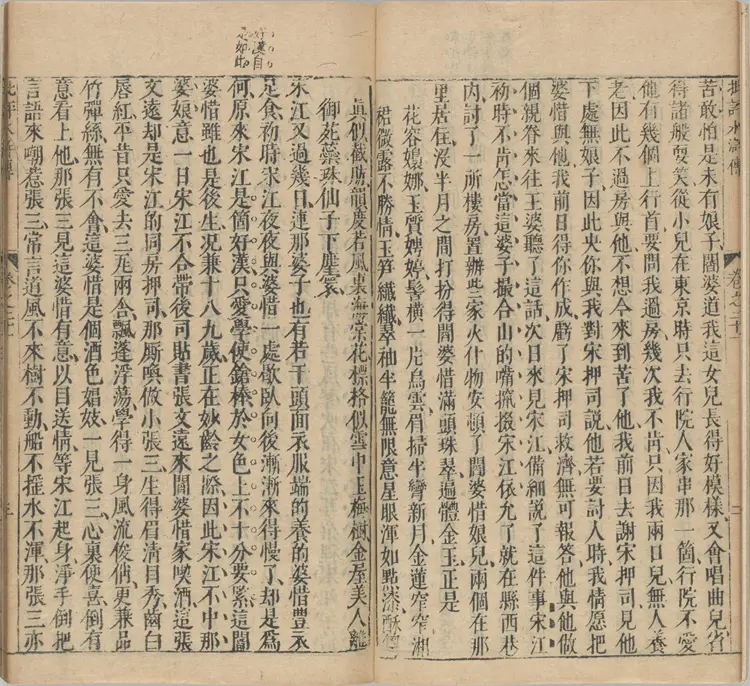 批評水滸傳
卷之二十一
二
苦敢怕是未有娘子閻婆道我這女兒長得好模樣又會唱曲兒省
得諸般耍笑從小兒在東京時只去行院人家串那一箇行院不愛
他有幾個上行首要問我過房幾次我不肯只因我兩口兒無人養
老因此不過房與他不想今來到苦了他我前日去謝宋押司見他
下處無娘子因此央你與我對宋押司說他若要討人時我情愿把
婆惜與他我前日得你作成虧了宋押司救濟無可報答他與他做
個親眷來往王婆聽了這話次日來見宋江備細說了這件事宋江
初時不肯怎當這婆子撮合山的嘴攛掇宋江依允了就在縣西巷
內討了一所樓房置辦些家火什物安頓了閻婆惜娘兒兩個在那
里居住沒半月之間打扮得閻婆惜滿頭珠翠遍體金玉正是
花容嬝娜玉質娉婷髻橫一片烏雲眉掃半彎新月金蓮窄窄湘
裙微露不勝情玉笋纖纖翠袖半籠無限意星眼渾如點漆酥胸
真似截肪韻度若風裏海棠花標格似雪中玉梅樹金屋美人離
御苑蘂珠仙子下塵寰
宋江又過幾日連那婆子也有若干頭面衣服端的養的婆惜豐衣
足食初時宋江夜夜與婆惜一處歇臥向後漸漸來得慢了却是爲
何原來宋江是箇好漢只愛學使鎗棒於女色上不十分要緊這閻
婆惜雖也是後生况兼十八九歲正在妙齡之際因此宋江不中那
婆娘意一日宋江不合帶後司貼書張文遠來閻婆惜家喫酒這張
文遠却是宋江的同房押司那厮喚做小張三生得眉清目秀齒白
唇紅平昔只愛去三瓦兩舍飄蓬浮蕩學得一身風流俊俏更兼品
竹彈絲無有不會這婆惜是個酒色娼妓一見張三心裏便喜倒有
意看上他那張三見這婆惜有意以目送情等宋江起身淨手倒把
言語來嘲惹張三常言道風不來樹不動船不搖水不渾那張三亦
好漢自
不如此
批評水滸傳
卷之二十一
三